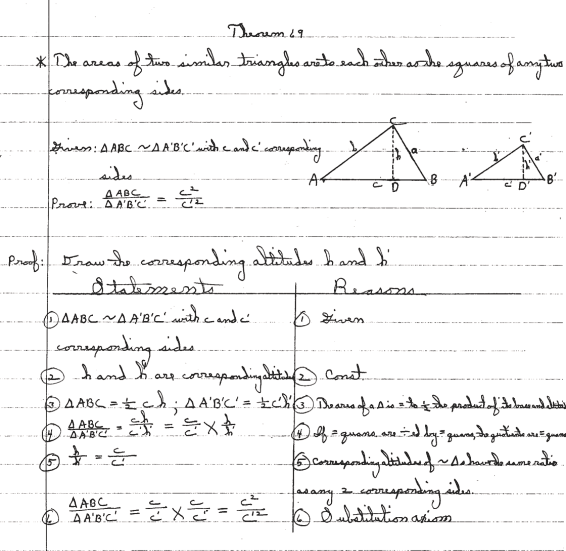 Theorem 69
* The areas of two similar triangles are to each other as the squares of any two
corresponding sides.
Given: ΔABC ~ ΔA'B'C' with c and c' corresponding
sides
Prove: ΔABC/ΔA'B'C' = c²/c'²
C
b h a
A c D B
C'
b' h' a'
A' c' D' B'
Proof: Draw the corresponding altitudes h and h'
Statements Reasons
① ΔABC ~ ΔA'B'C' with c and c' ① Given
corresponding sides
② h and h' are corresponding altitudes ② Const.
③ ΔABC = ½ ch ; ΔA'B'C' = ½ c'h' ③ The area of a Δ is = to ½ the product of its base and altitude
④ ΔABC/ΔA'B'C' = ch/c'h' = c/c' × h/h' ④ If = quans. are ÷ed by = quans, the quotients are = quans
⑤ h/h' = c/c' ⑤ Corresponding altitudes of ~ Δs have the same ratio
as any 2 corresponding sides.
⑥ ΔABC/ΔA'B'C' = c/c' × c/c' = c²/c'² ⑥ Substitution axiom